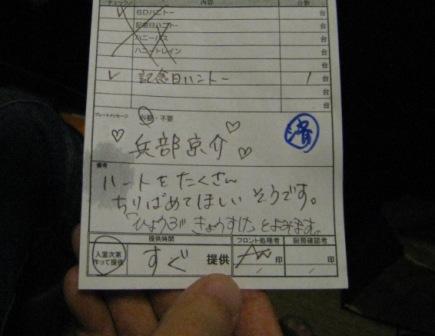 チェック 内容 台数
辛口ハントー 台
記念日ハントー 台
ハニーバス 台
ハニートレイン 台
✓ 記念日ハントー 1 台
台
台
プレートメッセージ 必要・不要
♡ 兵部京介 ♡ ♡
済
備考
ハートをたくさん
ちりばめてほしい そうです。
「ひょうぶ きょうすけ」とよみます。
提供時間 フロント処理者 厨房確認者
入室次第
作って提供
すぐ 提供 印 印